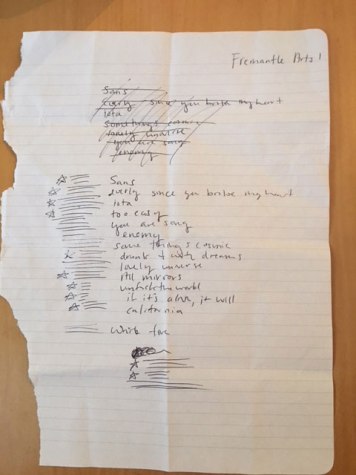 Fremantle Arts 1
Sans
every since you broke my heart
iota
something cosmic
lonely universe
you are song
enemy
Sans
every since you broke my heart
iota
too easy
you are song
enemy
some things cosmic
drunk & with dreams
lonely universe
still mirrors
unfucktheworld
if it's alive, it will
california
White fire